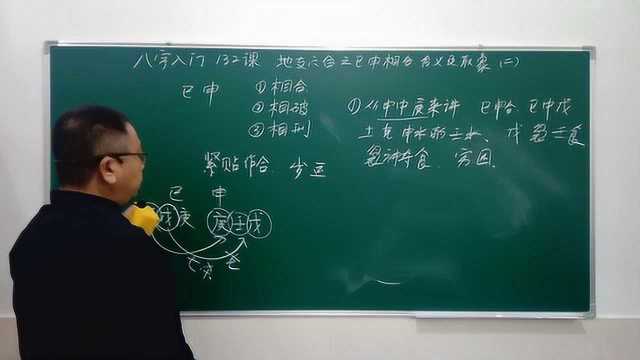 八字入门 132课 地支六合之巳申相合含义及取象(二)
巳申 ①相合
②相破
③相刑
紧贴作合
①从申中庚来讲 巳合 巳中戊
土克申中的壬水、戊枭壬食
枭神夺食 穷困、
巳 申
戊庚 庚壬戊
克